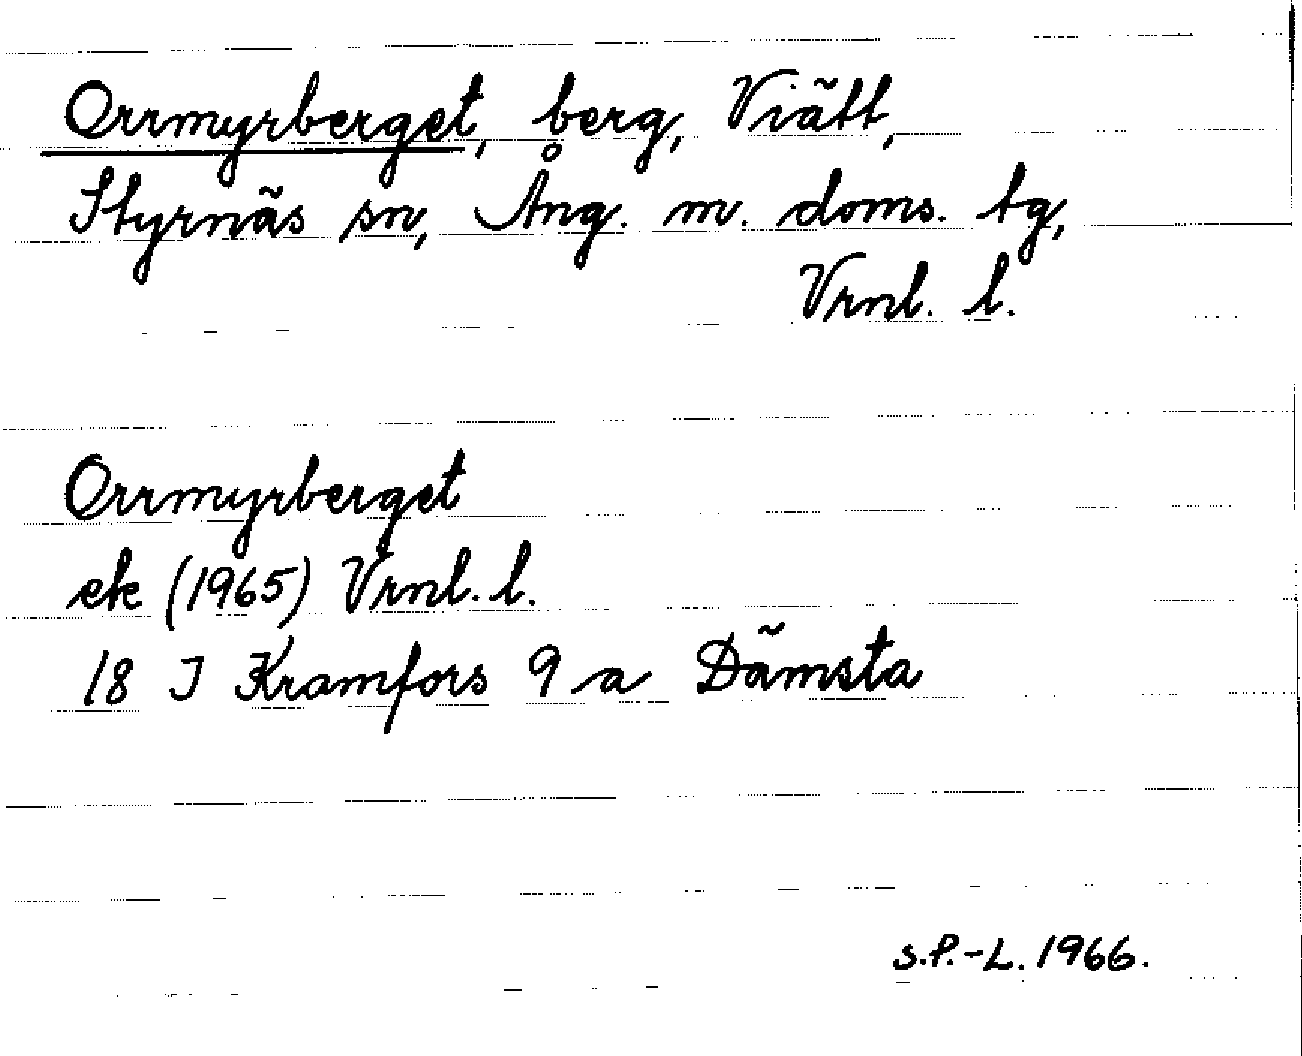 Orrmyrberget, berg, Viätt,
Styrnäs sn, Ång. m. doms. tg,
Vrnl. l.
Orrmyrberget
ek (1965) Vrnl. l.
18 I Kramfors 9 a Dämsta
S.P.-L. 1966.